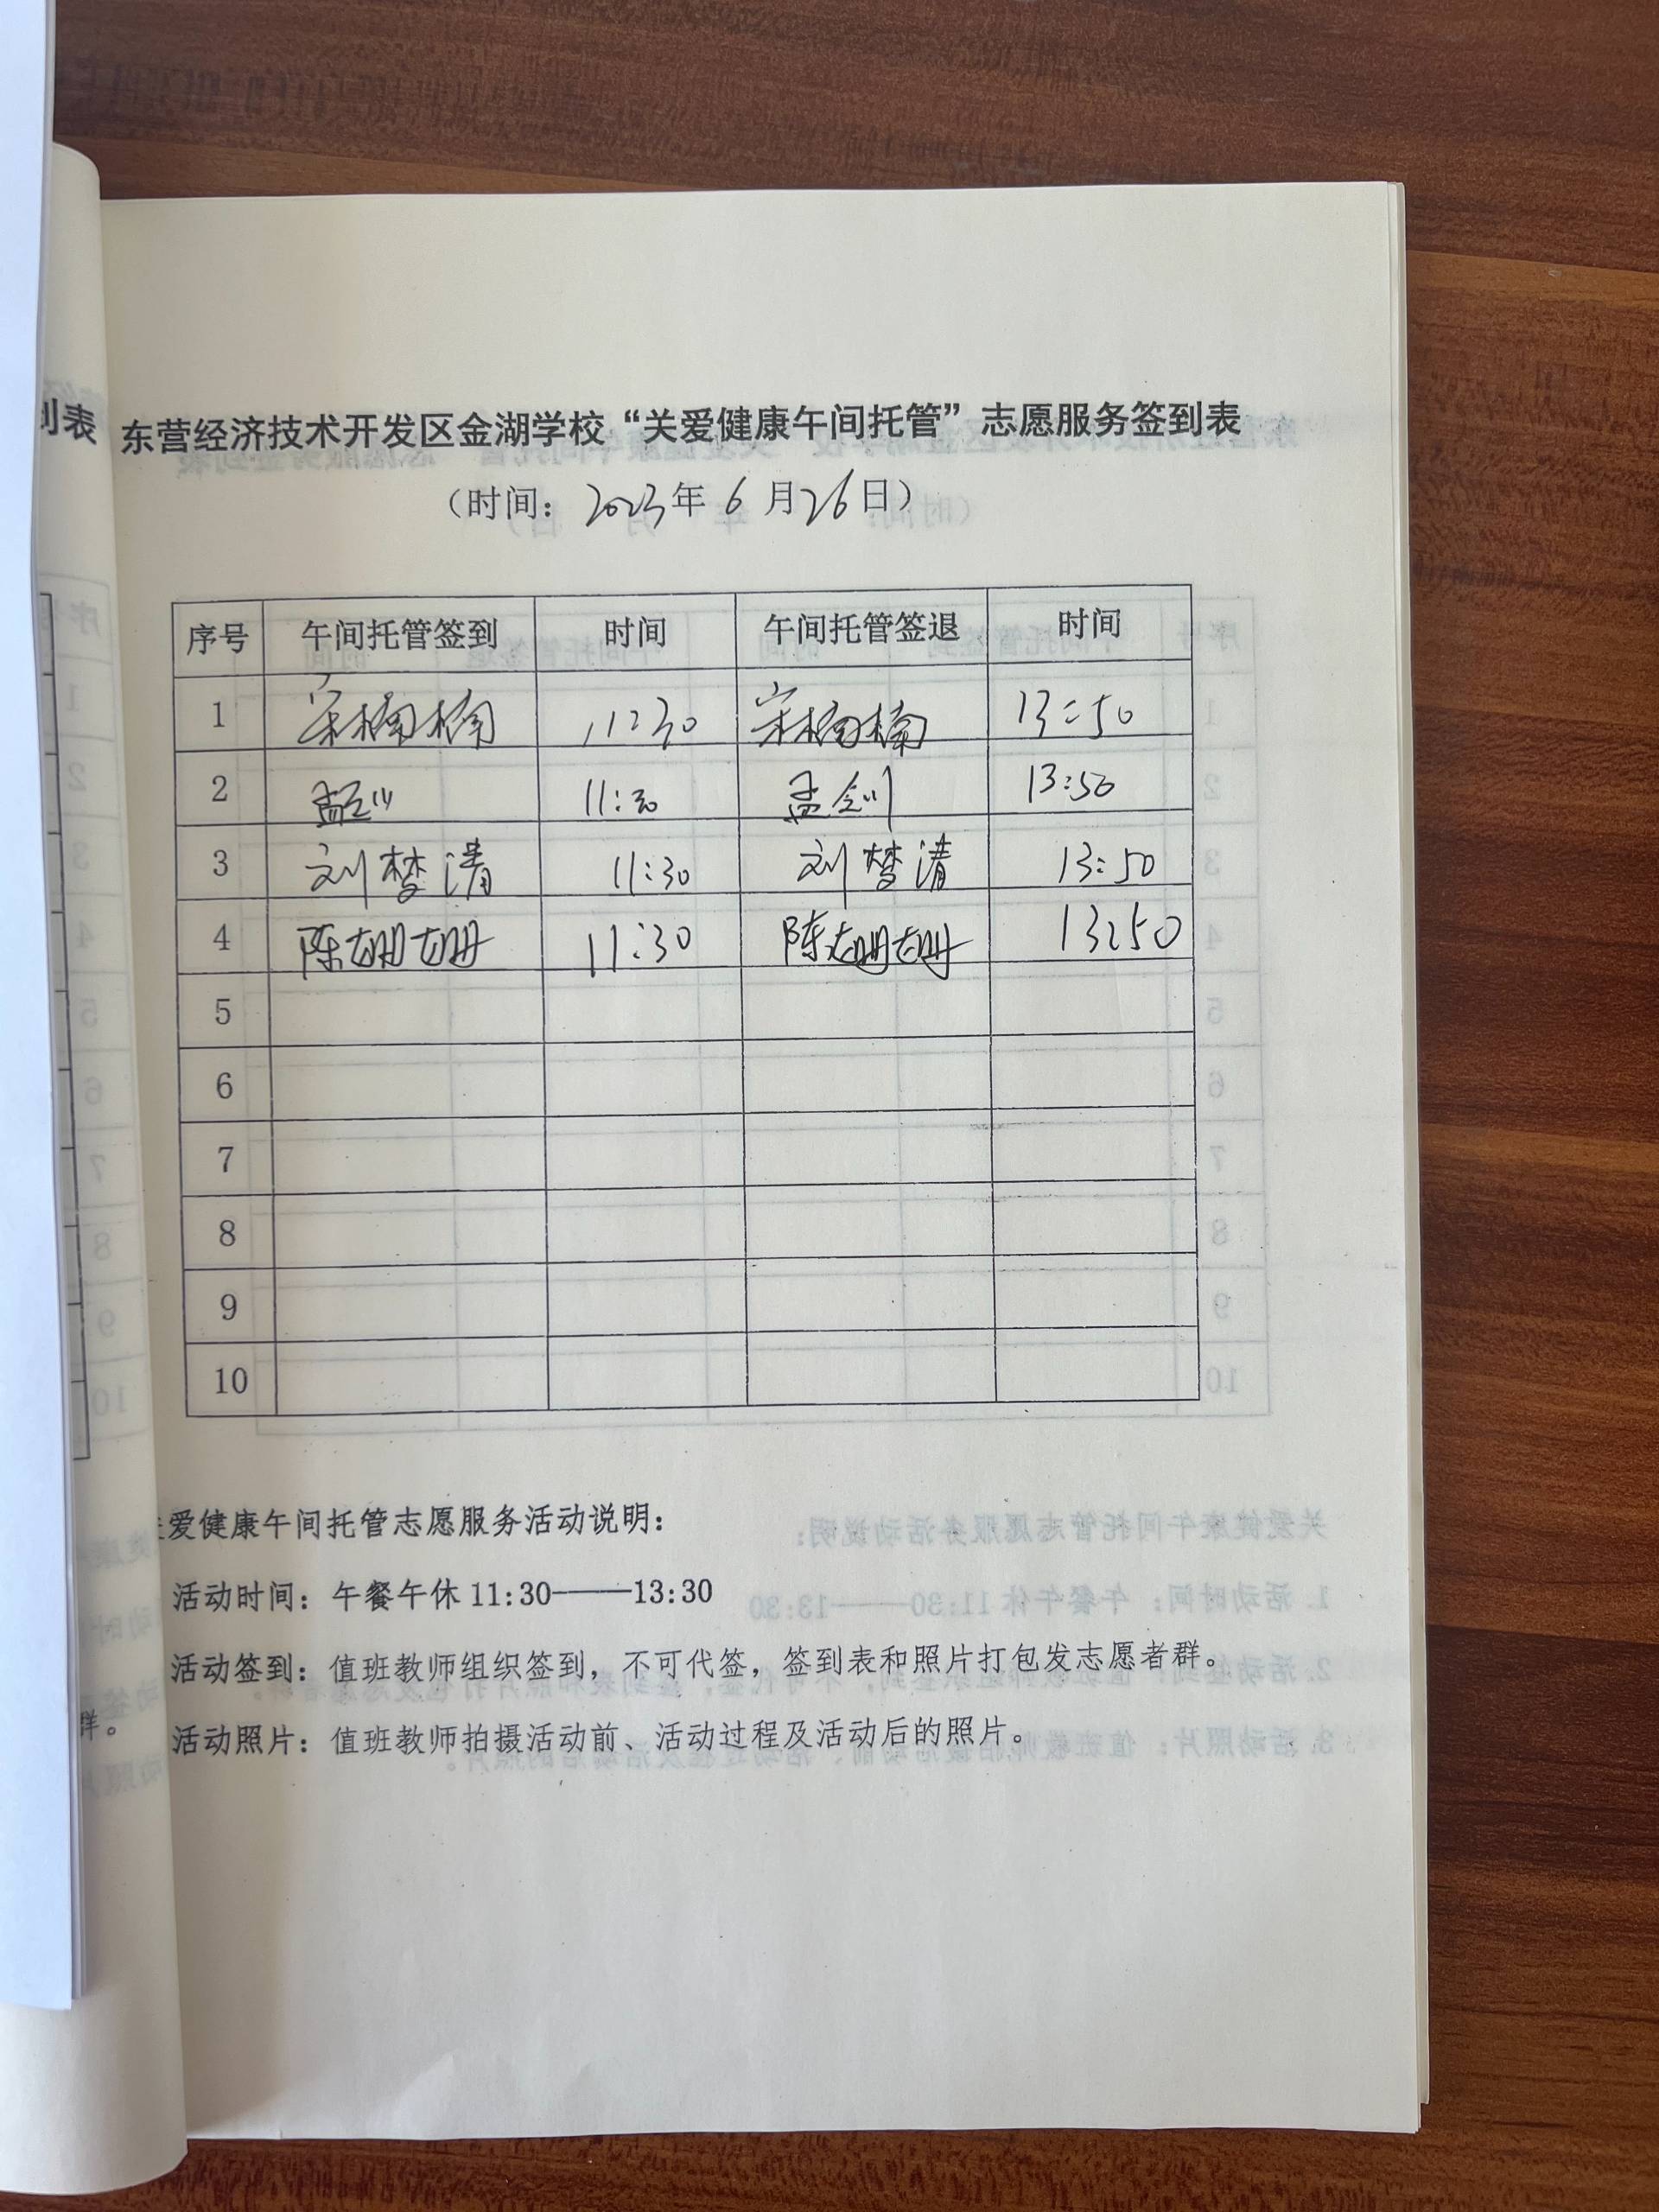 到表
东营经济技术开发区金湖学校“关爱健康午间托管”志愿服务签到表
（时间：2023年6月26日）
序号 午间托管签到 时间 午间托管签退 时间
1 宋楠楠 11:30 宋楠楠 13:50
2 孟 11:30 孟 13:50
3 刘梦清 11:30 刘梦清 13:50
4 陈 11:30 陈 13:50
5
6
7
8
9
10
爱健康午间托管志愿服务活动说明：
活动时间：午餐午休 11:30——13:30
活动签到：值班教师组织签到，不可代签，签到表和照片打包发志愿者群。
群。
活动照片：值班教师拍摄活动前、活动过程及活动后的照片。